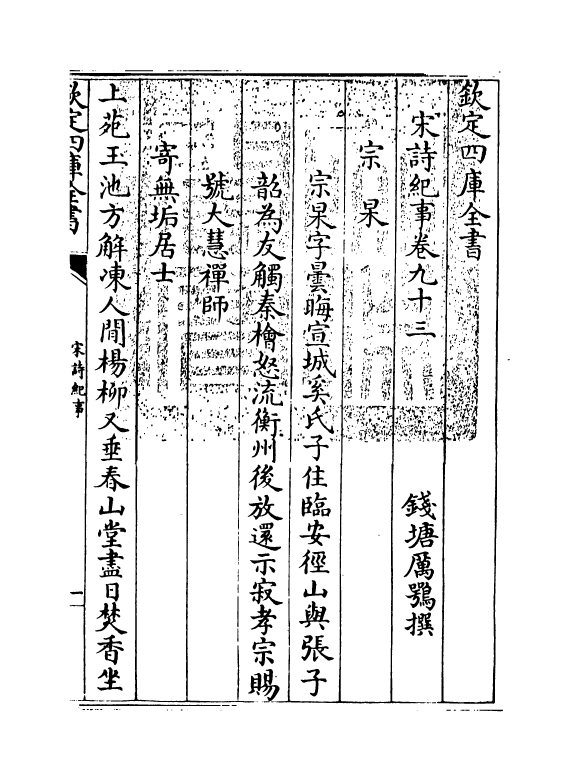 欽定四庫全書
宋詩紀事卷九十三
錢塘厲鶚撰
宗杲
宗杲字曇晦宣城奚氏子住臨安徑山與張子
韶為友觸秦檜怒流衡州後放還示寂孝宗賜
號大慧禪師
寄無垢居士
上苑玉池方解凍人間楊柳又垂春山堂盡日焚香坐
欽定四庫全書
宋詩紀事
一